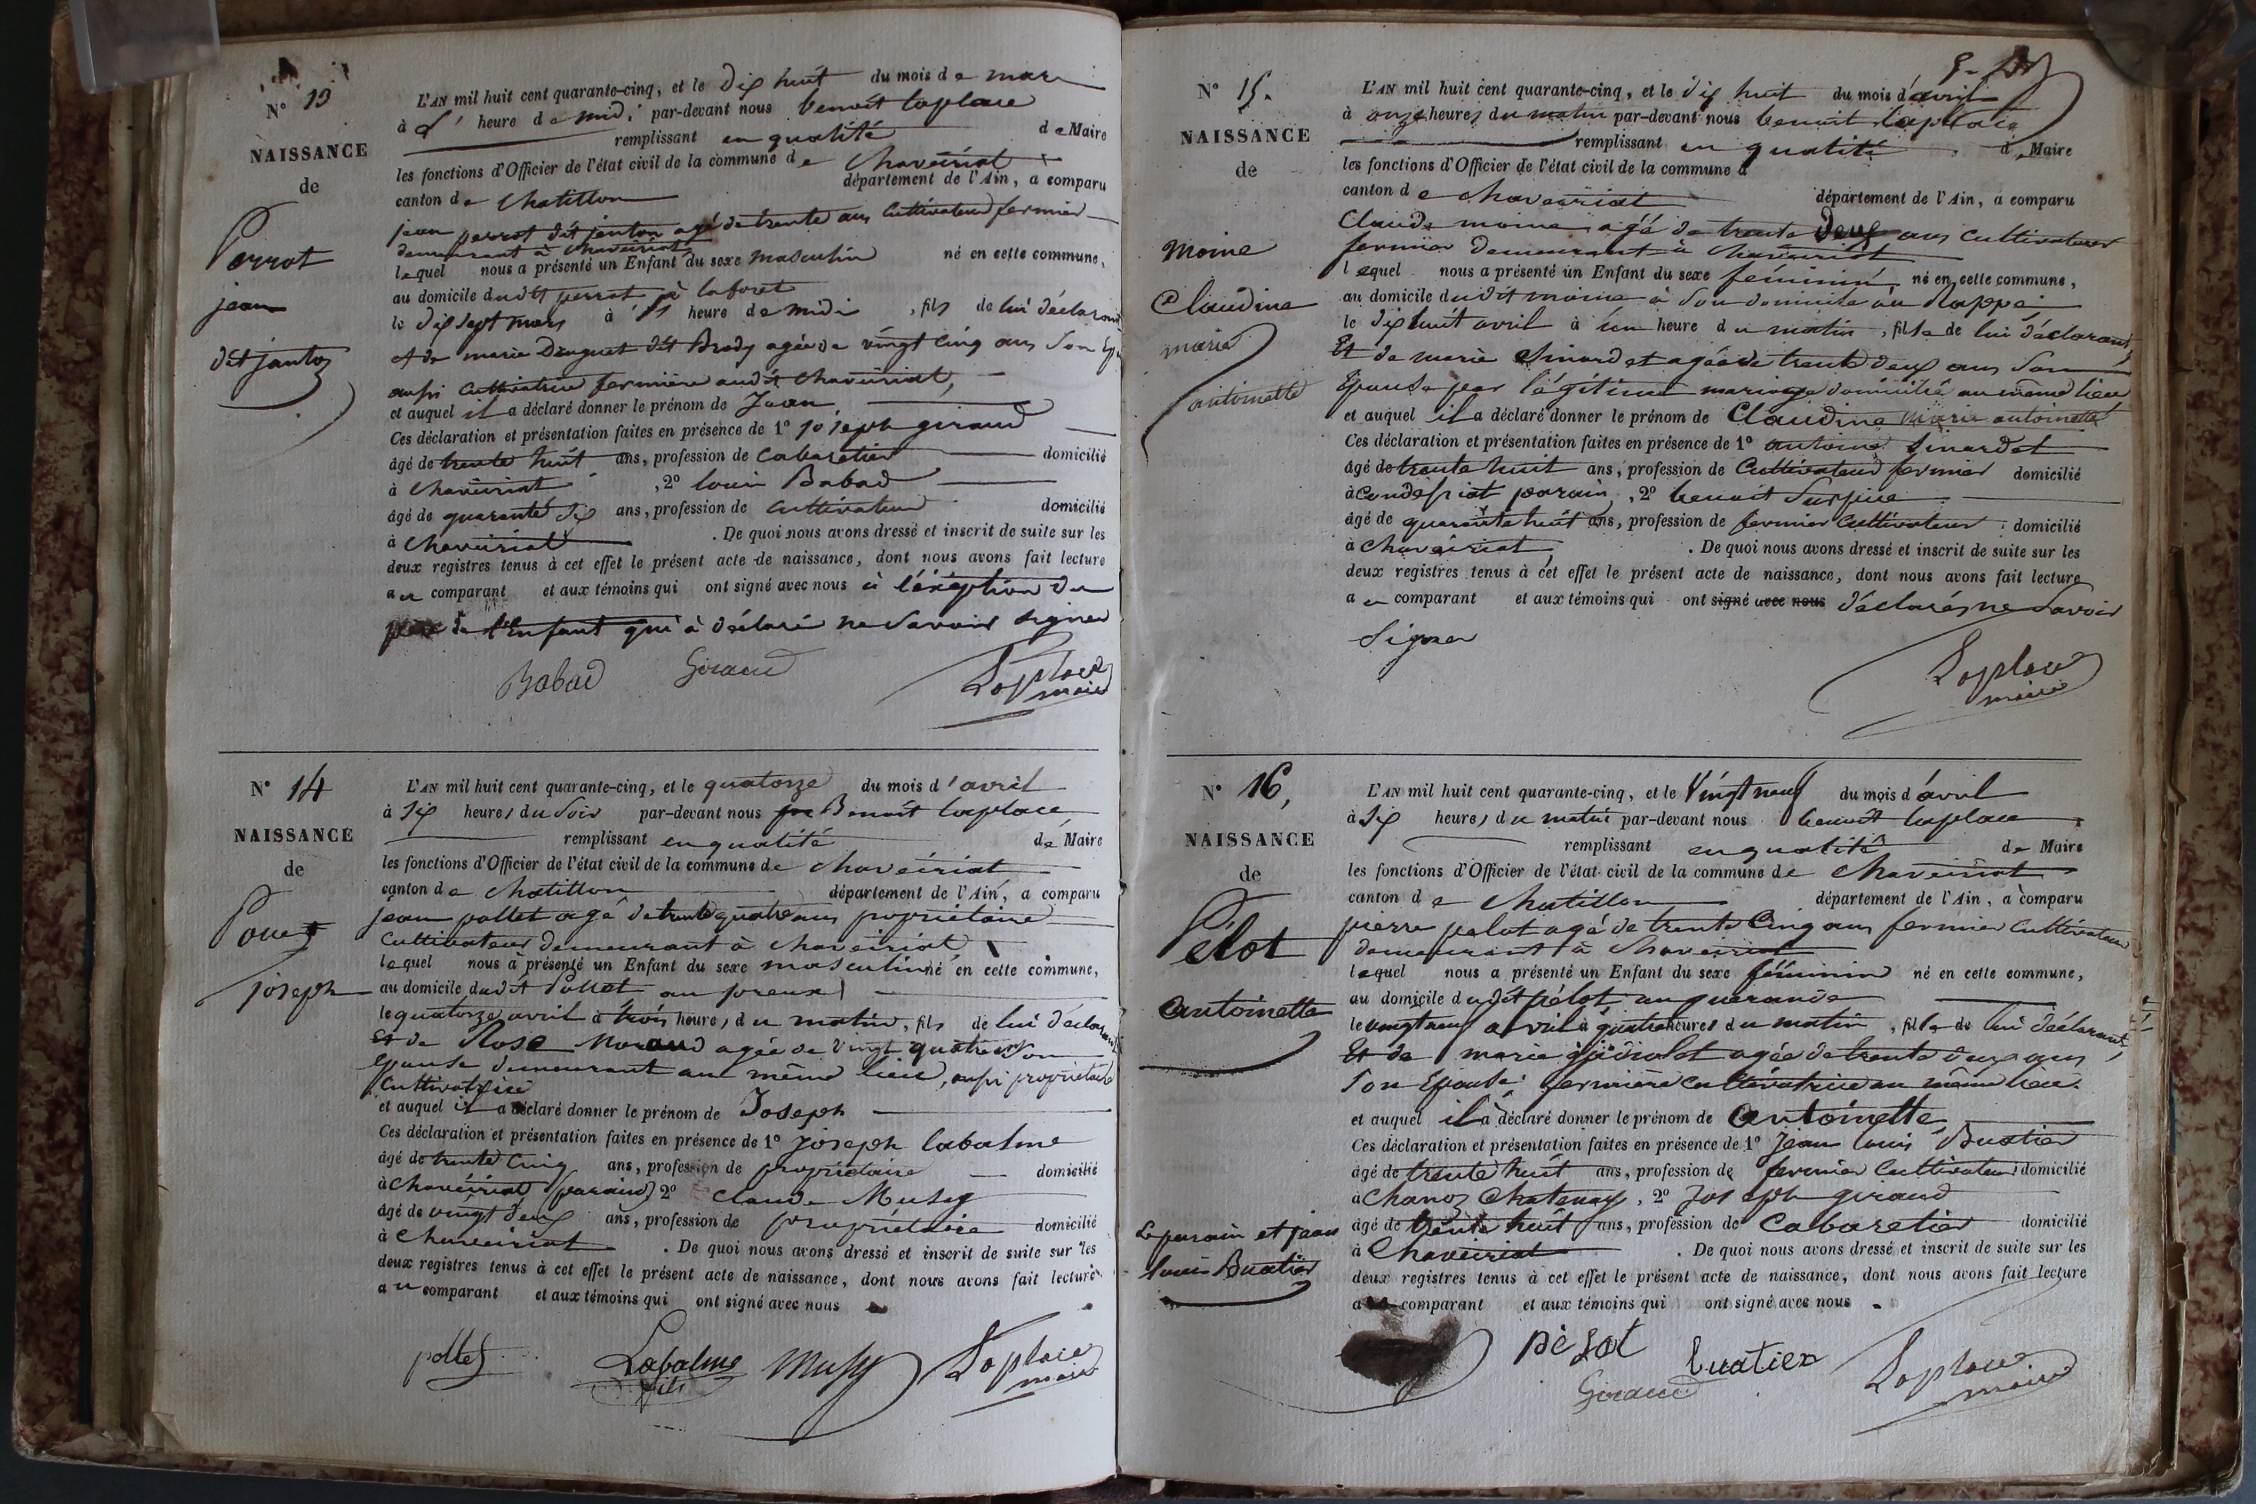 N° 13
NAISSANCE
de
Perrot
jean
dit janton
L'AN mil huit cent quarante-cinq, et le dix huit du mois de mars
à l' heure de midi par-devant nous benoit laplace
remplissant en qualité de Maire
les fonctions d'Officier de l'état civil de la commune de Chaveiriat
canton de Chatillon département de l'Ain, a comparu
jean perrot dit janton agé de trente ans Cultivateur fermier
demeurant à Chaveiriat
lequel nous a présenté un Enfant du sexe masculin né en cette commune,
au domicile dudit perrot à laforet
le dix sept mars à heure de midi, fils de lui déclarant
et de marie Druguet dit Brody agée de vingt cinq ans Son
aussi Cultivatrice fermière audit Chaveiriat,
et auquel il a déclaré donner le prénom de Jean
Ces déclaration et présentation faites en présence de 1° joseph giraud
âgé de trente huit ans, profession de Cabaretier domicilié
à Chaveiriat, 2° louis Babad
âgé de quarante six ans, profession de Cultivateur domicilié
à Chaveiriat. De quoi nous avons dressé et inscrit de suite sur les
deux registres tenus à cet effet le présent acte de naissance, dont nous avons fait lecture
au comparant et aux témoins qui ont signé avec nous à l'éxception du
père de l'Enfant qui à déclaré ne Savoir signer
Babad Giraud Laplace
maire
N° 14
NAISSANCE
de
joseph
L'AN mil huit cent quarante-cinq, et le quatorze du mois d'avril
à Six heures du Soir par-devant nous Benoit laplace
remplissant en qualité de Maire
les fonctions d'Officier de l'état civil de la commune de Chaveiriat
canton de Chatillon département de l'Ain, a comparu
jean pollet agé de trente quatre ans propriétaire
Cultivateur demeurant à Chaveiriat
lequel nous a présenté un Enfant du sexe masculin né en cette commune,
au domicile dudit Pollet au
le quatorze avril à trois heures du matin, fils de lui déclarant
Et de Rose Moraud agée de vingt quatre ans Son
epouse demeurant au même lieu, aussi propriétaire
Cultivatrice
et auquel il a déclaré donner le prénom de Joseph
Ces déclaration et présentation faites en présence de 1° joseph labalme
âgé de trente Cinq ans, profession de propriétaire domicilié
à Chaveiriat (parain) 2° Claude Musy
âgé de vingt deux ans, profession de propriétaire domicilié
à Chaveiriat. De quoi nous avons dressé et inscrit de suite sur les
deux registres tenus à cet effet le présent acte de naissance, dont nous avons fait lecture
au comparant et aux témoins qui ont signé avec nous
pollet Labalme Musy Laplace
fils maire
N° 15.
NAISSANCE
de
Moine
Claudine
marie
antoinette
L'AN mil huit cent quarante-cinq, et le dix huit du mois d'avril
à onze heures du matin par-devant nous benoit laplace
remplissant en qualité d Maire
les fonctions d'Officier de l'état civil de la commune d
canton de Chaveiriat département de l'Ain, a comparu
Claude moine agé de trente Deux ans Cultivateur
fermier demeurant à Chaveiriat
lequel nous a présenté un Enfant du sexe féminin, né en cette commune,
au domicile dudit moine à Son domicile au Rappe
le dix huit avril à un heure du matin, fille de lui déclarant
Et de marie Sinardet agée de trente deux ans Son
Epouse par légitime mariage domicilié au même lieu
et auquel il a déclaré donner le prénom de Claudine marie antoinette
Ces déclaration et présentation faites en présence de 1° antoine Sinardet
âgé de trente huit ans, profession de Cultivateur fermier domicilié
à Condessiat parain, 2° benoit
âgé de quarante huit ans, profession de fermier Cultivateur domicilié
à Chaveiriat. De quoi nous avons dressé et inscrit de suite sur les
deux registres tenus à cet effet le présent acte de naissance, dont nous avons fait lecture
au comparant et aux témoins qui ont signé avec nous déclarés ne Savoir
Signer
Laplace
maire
N° 16,
NAISSANCE
de
Pélot
antoinette
L'AN mil huit cent quarante-cinq, et le Vingt neuf du mois d'avril
à Six heures du matin par-devant nous benoit laplace
remplissant en qualité de Maire
les fonctions d'Officier de l'état civil de la commune de Chaveiriat
canton de Chatillon département de l'Ain, a comparu
pierre pelot agé de trente Cinq ans fermier Cultivateur
demeurant à Chaveiriat
lequel nous a présenté un Enfant du sexe féminin né en cette commune,
au domicile dudit Pélot au guerande
le vingt neuf avril à quatre heures du matin, fille de lui déclarant,
Et de marie agée de trente ans
Son Epouse fermière Cultivatrice au même lieu.
et auquel il a déclaré donner le prénom de antoinette,
Ces déclaration et présentation faites en présence de 1° Jean louis Buatier
âgé de trente huit ans, profession de fermier Cultivateur domicilié
à Chanoz Chatenay, 2° Joseph giraud
âgé de trente huit ans, profession de Cabaretier domicilié
à Chaveiriat. De quoi nous avons dressé et inscrit de suite sur les
deux registres tenus à cet effet le présent acte de naissance, dont nous avons fait lecture
au comparant et aux témoins qui ont signé avec nous
Le parain et jean
louis Buatier
péLot buatier Laplace
Giraud maire